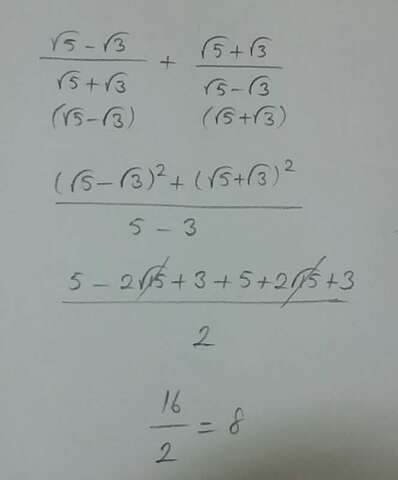 (√5 - √3)/(√5 + √3) + (√5 + √3)/(√5 - √3)
(√5 - √3) (√5 + √3)
((√5 - √3)² + (√5 + √3)²)/(5 - 3)
(5 - 2√15 + 3 + 5 + 2√15 + 3)/2
16/2 = 8